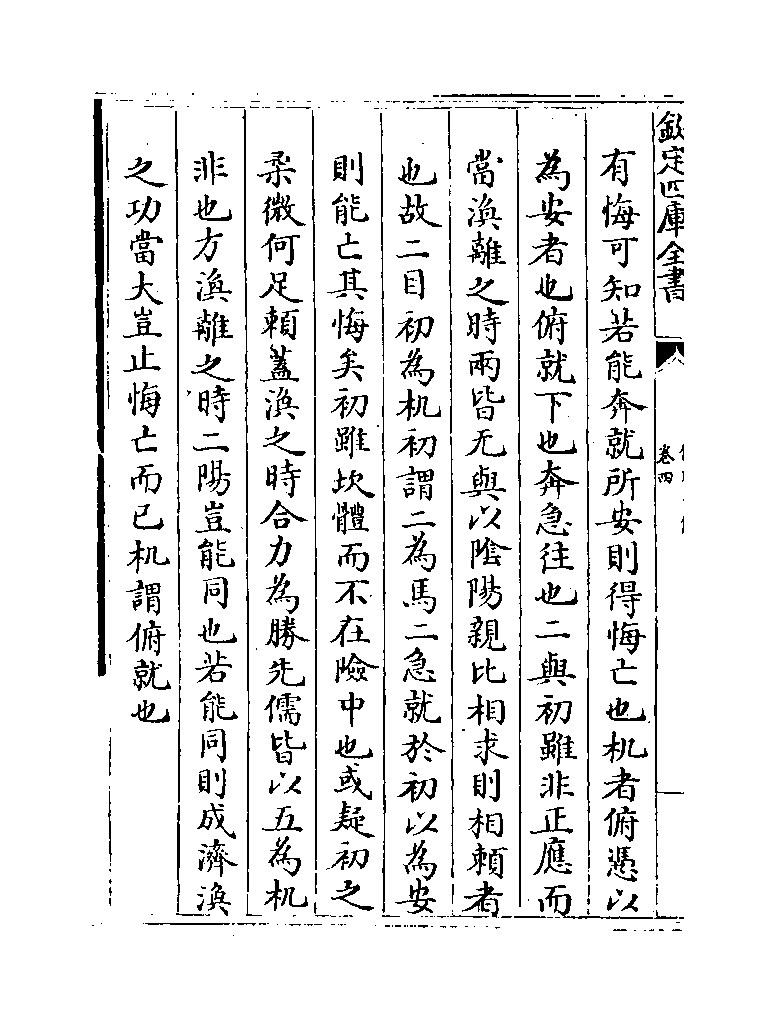 欽定四庫全書
卷四
有悔可知若能奔就所安則得悔亡也机者俯憑以
為安者也俯就下也奔急往也二與初雖非正應而
當渙離之時兩皆无與以陰陽親比相求則相賴者
也故二目初為机初謂二為馬二急就於初以為安
則能亡其悔矣初雖坎體而不在險中也或疑初之
柔微何足賴蓋渙之時合力為勝先儒皆以五為机
非也方渙離之時二陽豈能同也若能同則成濟渙
之功當大豈止悔亡而已机謂俯就也